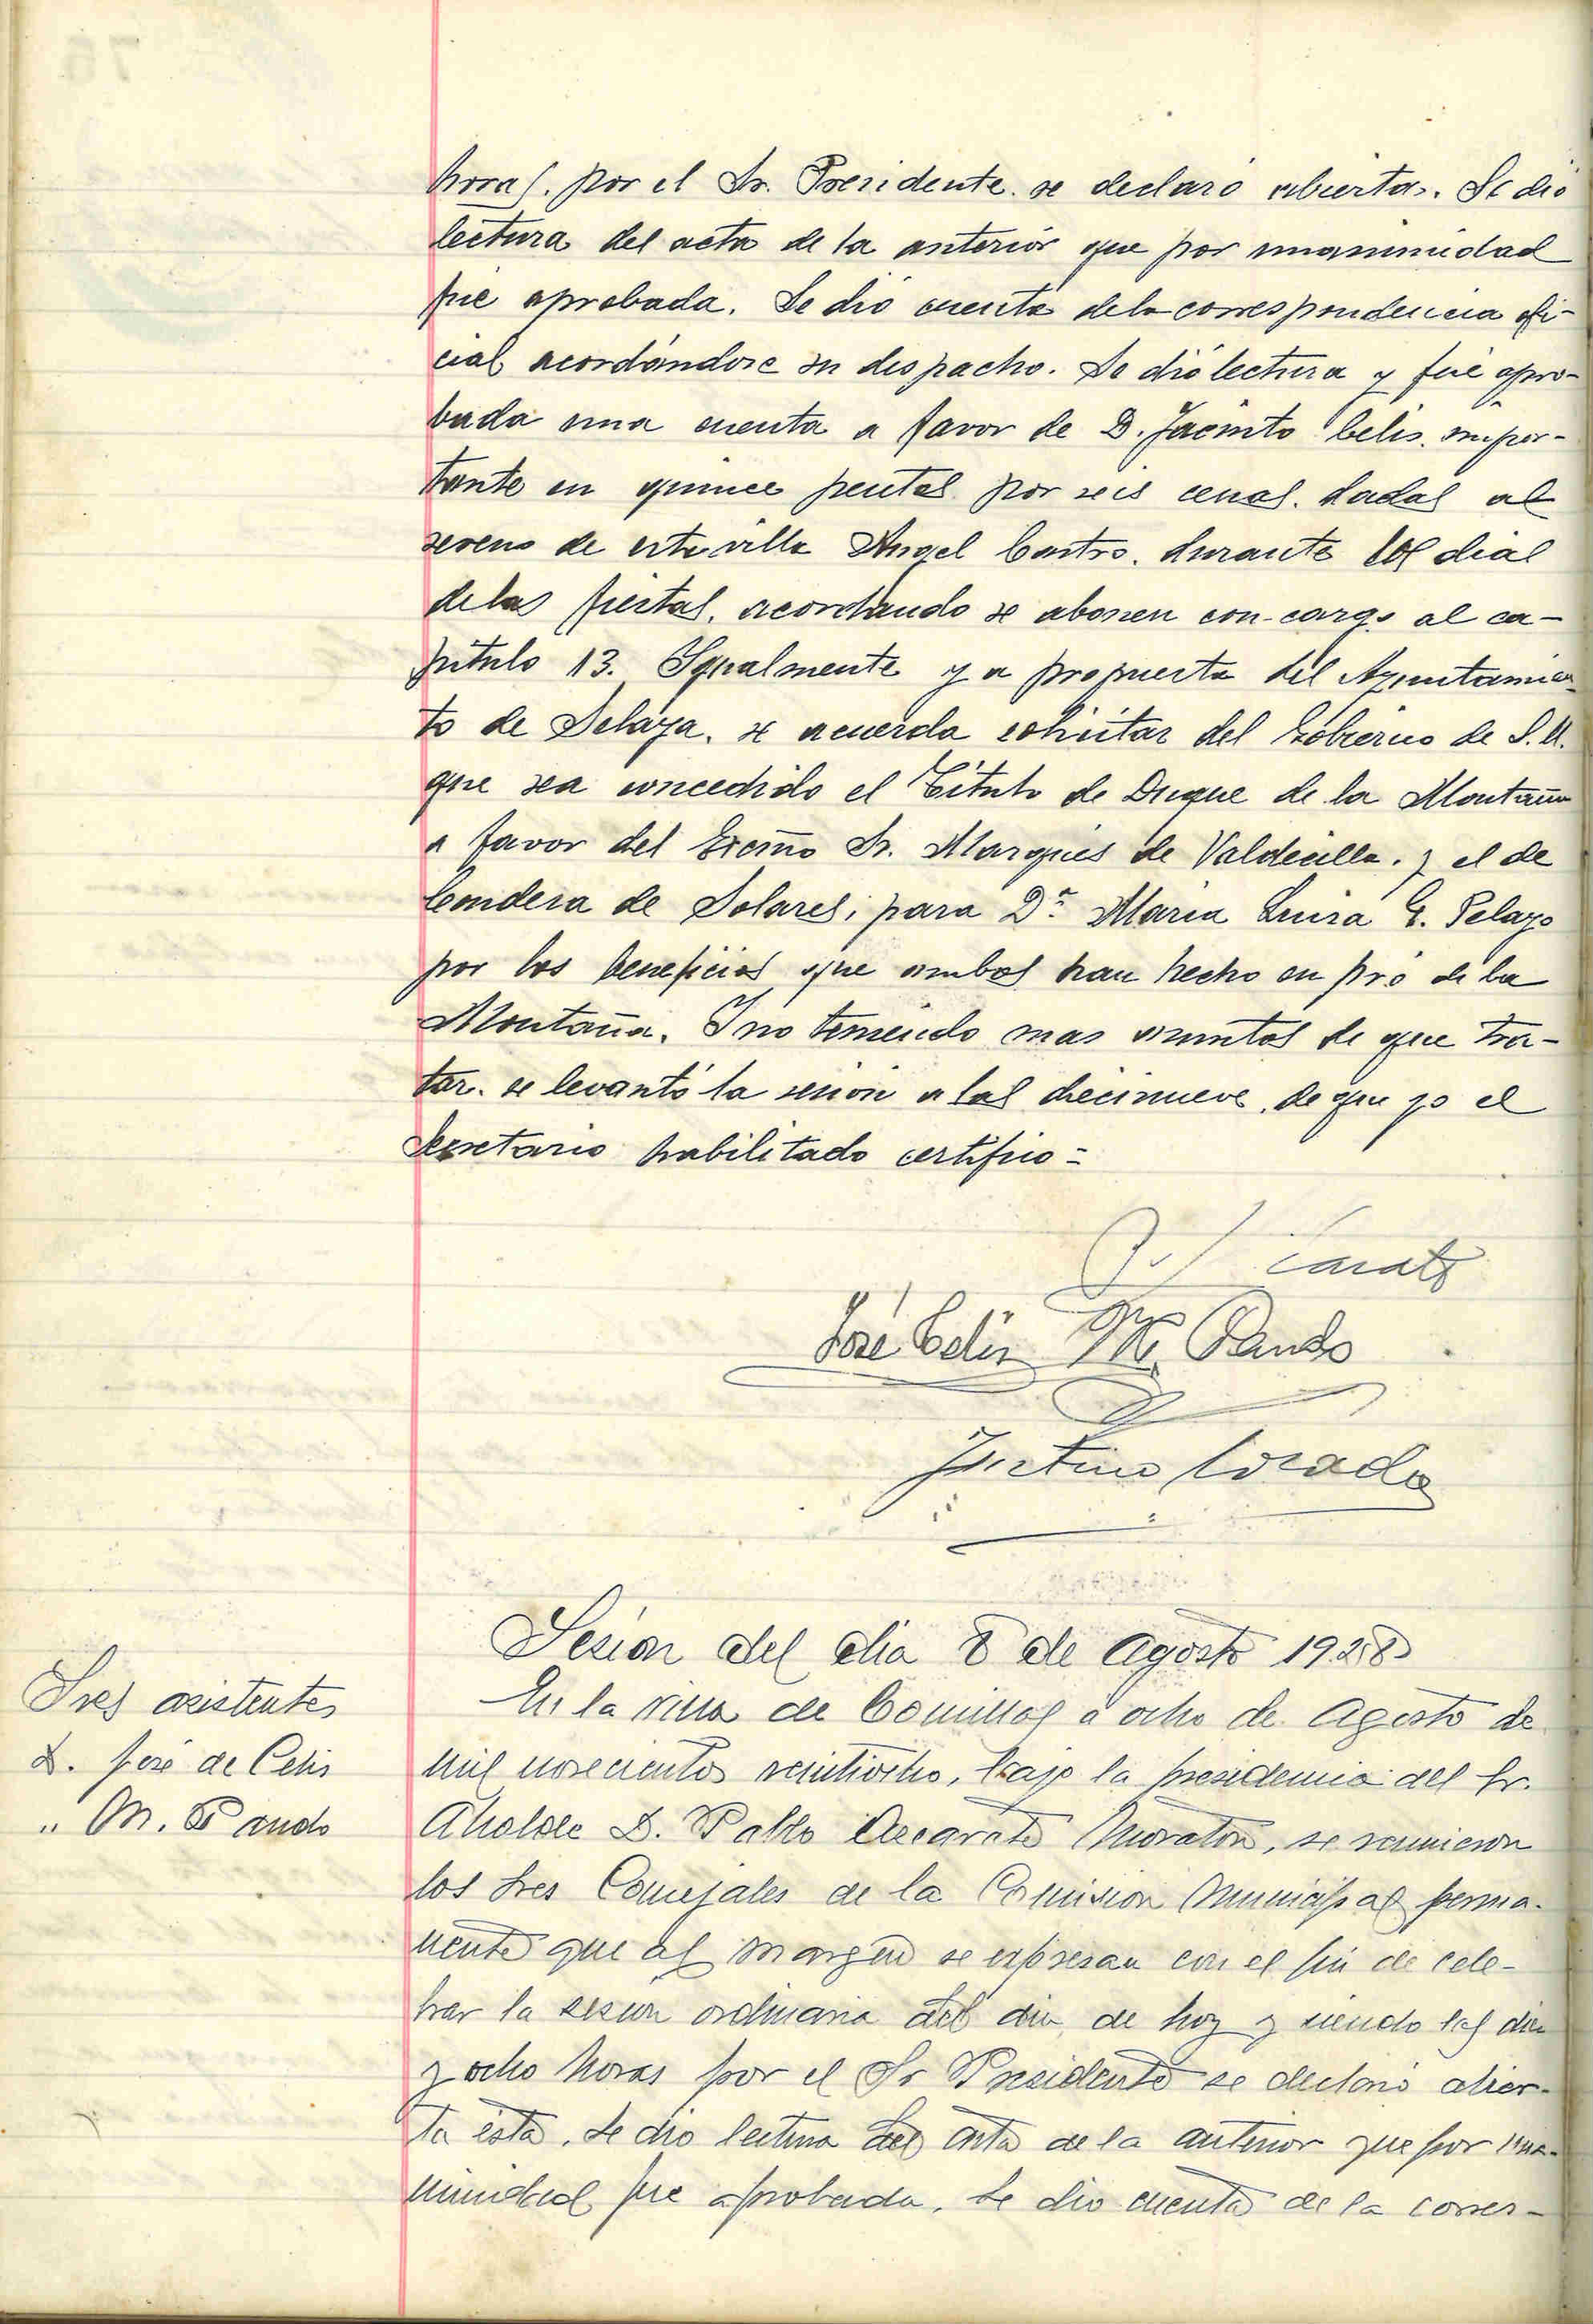 horas. por el Sr. Presidente. se declaró abierta. Se dió
lectura del acta de la anterior que por unanimidad
fué aprobada. Se dió cuenta de la correspondencia ofi-
cial acordándose su despacho. Se dió lectura y fué apro-
bada una cuenta a favor de D. Jacinto Celis. impor-
tante en quince pesetas por seis cenas. dadas al
sereno de esta villa Angel Castro. durante los dias
de las fiestas. acordando se abonen con-cargo al ca-
pitulo 13. Igualmente y a propuesta del Ayuntamien-
to de Selaya. se acuerda solicitar del Gobierno de S.M.
que sea concedido el Título de Duque de la Montaña
a favor del Excmo Sr. Marqués de Valdecilla. y el de
Condesa de Solares; para Dª María Luisa G. Pelayo
por los beneficios que ambos han hecho en pró de la
Montaña. Y no teniendo mas asuntos de que tra-
tar. se levantó la sesión a las diecinueve. de que yo el
Secretario habilitado certifico=
José Celis M. Pando
Justino Posada
Sesion del dia 8 de Agosto 1928
Sres asistentes
D. José de Celis
" M. Pando
En la villa de Comillas a ocho de Agosto de
mil novecientos veintiocho, bajo la presidencia del Sr.
Alcalde D. Pablo Azcarate Moraton, se reunieron
los Sres Concejales de la Comision Municipal perma-
nente que al margen se expresan con el fin de cele-
brar la sesion ordinaria del dia de hoy y siendo las diez
y ocho horas por el Sr Presidente se declaró abier-
ta ésta. Se dio lectura del acta de la anterior que por una-
nimidad fue aprobada. Se dio cuenta de la corres-